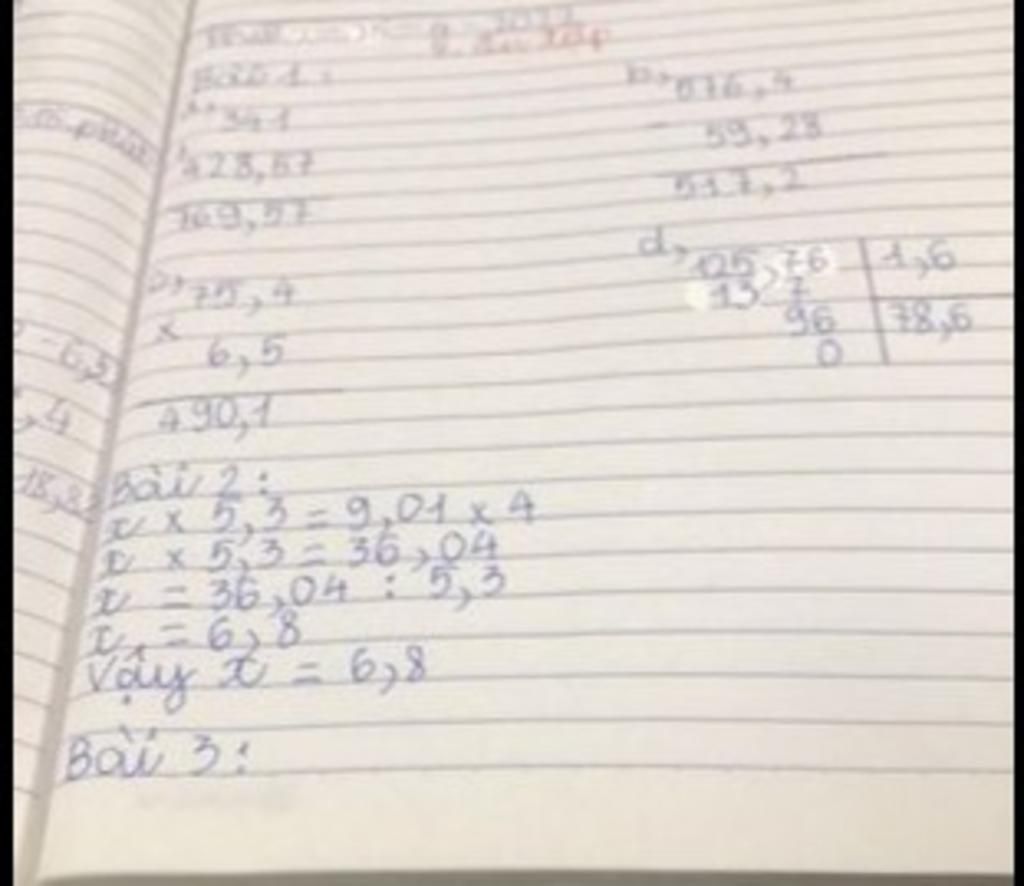 Bài 1:
341
428,57
769,57
b, 576,4
- 59,28
517,2
75,4
×
6,5
490,1
d, 125,76 1,6
13 7
96 78,6
0
-6,5
,4
18,8
Bài 2:
x × 5,3 = 9,01 × 4
x × 5,3 = 36,04
x = 36,04 : 5,3
x = 6,8
Vậy x = 6,8
Bài 3: